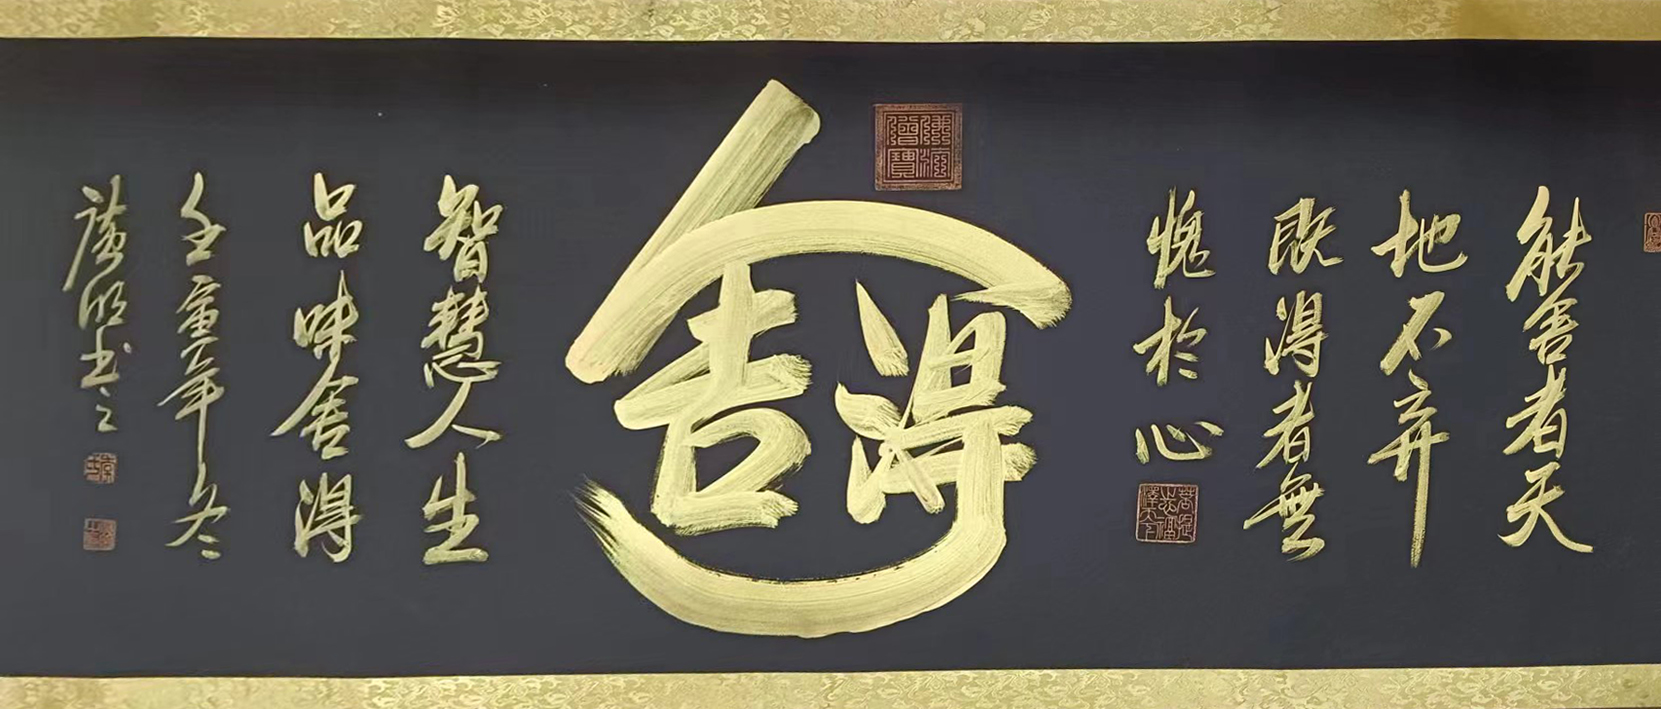 能舍者天
地不弃
既得者無
愧於心
舍得
智慧人生
品味舍得
壬寅年冬